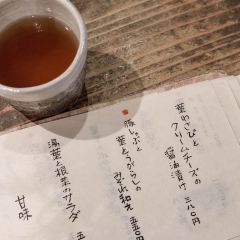 葉わさびと
クリームチーズの
醤油漬け 三八〇円
豚しゃぶと
葉とうがらしの
みぞれ和え 五五〇円
湯葉と根菜のサラダ 五
甘味